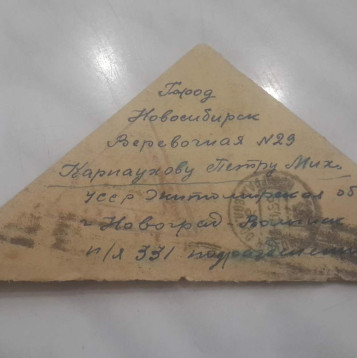 Город
Новосибирск
Веревочная №29
Карнаухову Петру Мих.
УССР Житомирская об
г Новоград Волынск
п/я 331